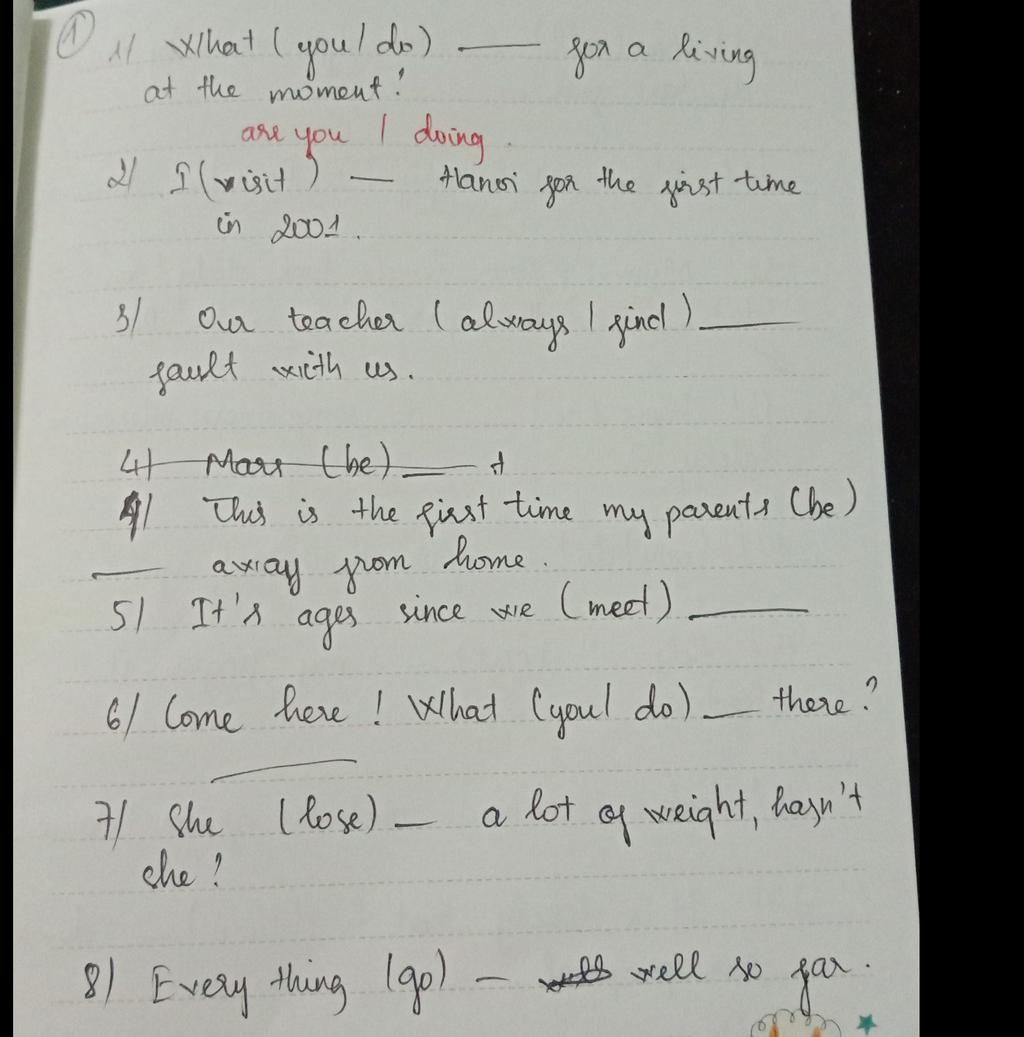 ①
1/ What (you/do) — for a living
at the moment?
are you / doing.
2/ I (visit) — Hanoi for the first time
in 2001.
3/ Our teacher (always / find) —
fault with us.
4/ Mars (be) —
4/ This is the first time my parents (be)
— away from home.
5/ It's ages since we (meet) —
6/ Come here! What (you/ do) — there?
7/ She (lose) — a lot of weight, hasn't
she?
8/ Every thing (go) — well so far.